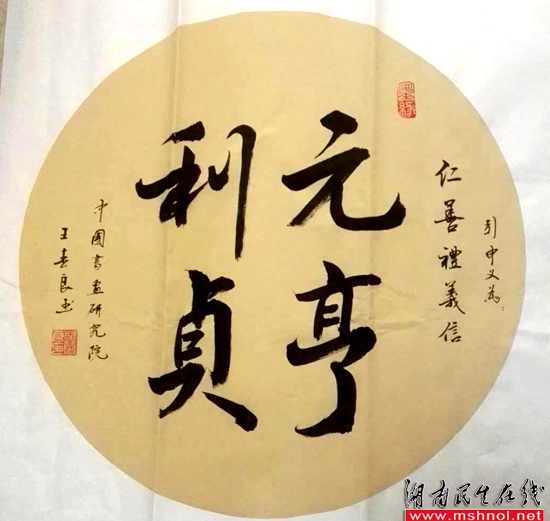 引申义为:
仁善禮義信
元亨
利貞
中國書畫研究院
王春良书
湖南民生在线
www.mshnol.net